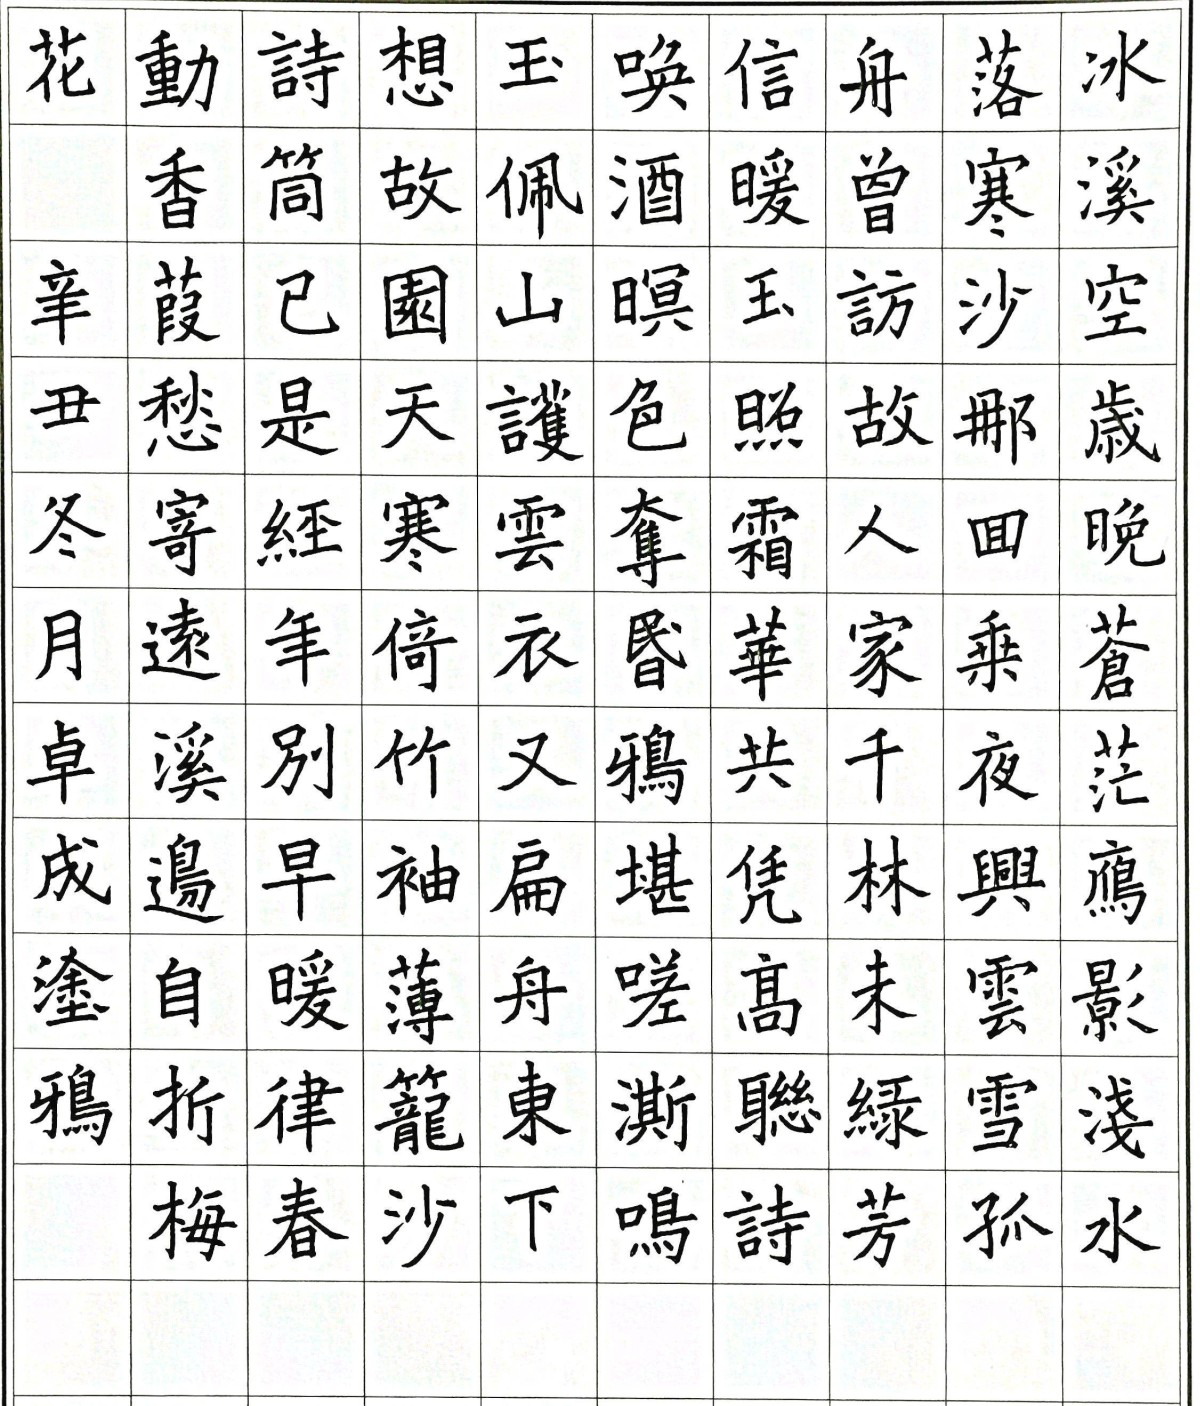 冰溪空歲晚蒼茫鴈影淺水
落寒沙那回乗夜興雲雪孤
舟曾訪故人家千林未緑芳
信暖玉照霜華共凭髙聯詩
喚酒暝色奪昏鴉堪嗟澌鳴
玉佩山護雲衣又扁舟東下
想故園天寒倚竹袖薄籠沙
詩筒已是經年別早暖律春
動香葭愁寄遠溪邉自折梅
花 辛丑冬月卓成塗鴉